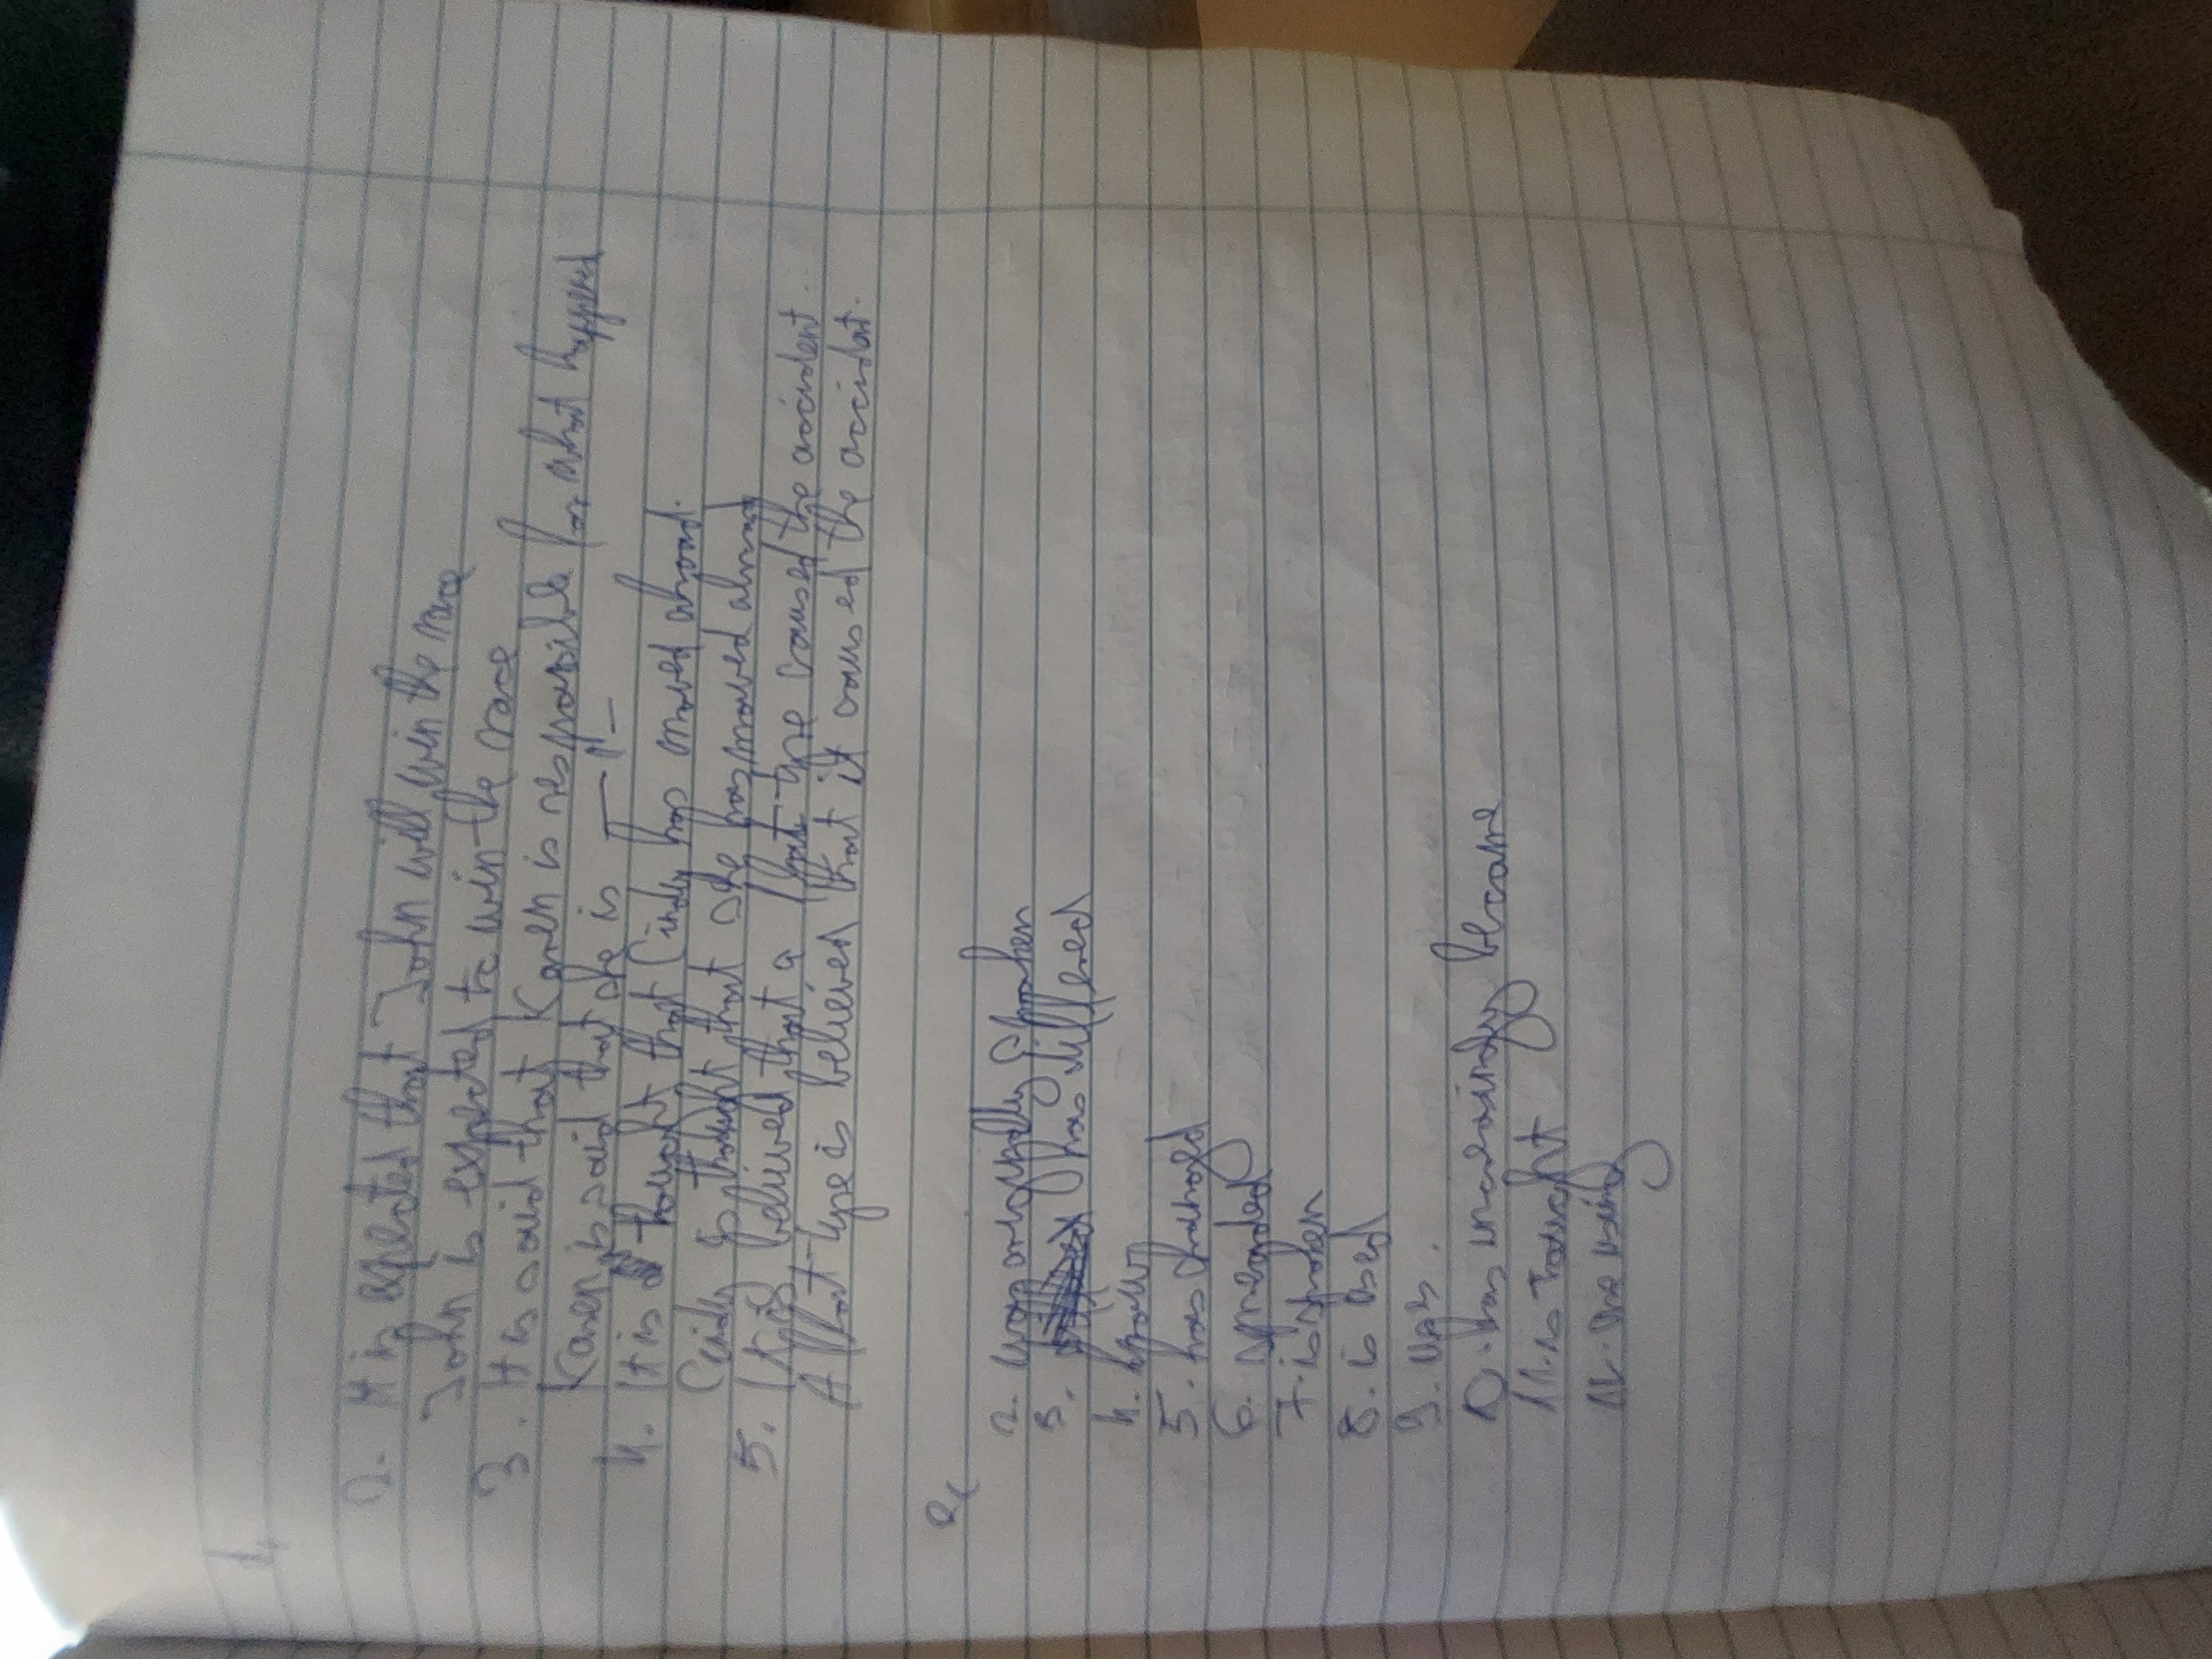 d,
2. It is expected that John will win the race
John is expected to win the race
3. It is said that Karen is responsible for what happened
Karen is said that she is —"—
4. It is thought that Cindy has moved abroad.
Cindy is thought that she has moved abroad
5. It is beleived that a flat tyre caused the accident.
A flat tyre is believed that it caused the accident.
e,
2. was originally spoken
3. has differed
4. know
5. has changed
6. spreaded
7. is spoken
8. is used
9. was
10. has increasingly became
11. is taught
12. are using